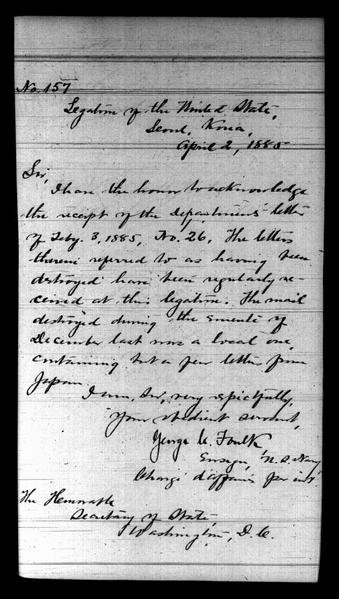 No. 157
Legation of the United States,
Seoul, Korea,
April 2, 1885
Sir,
I have the honor to acknowledge
the receipt of the Department's letter
of Feby. 3, 1885, No. 26. The letters
therein referred to as having been
destroyed have been regularly re-
ceived at this legation. The mail
destroyed during the emeute of
December last was a local one,
containing but a few letters from
Japan.
I am, Sir, very respectfully,
Your obedient servant,
George C. Foulk
Ensign, U.S. Navy
Chargé d'affaires per int.
The Honorable
Secretary of State,
Washington, D.C.